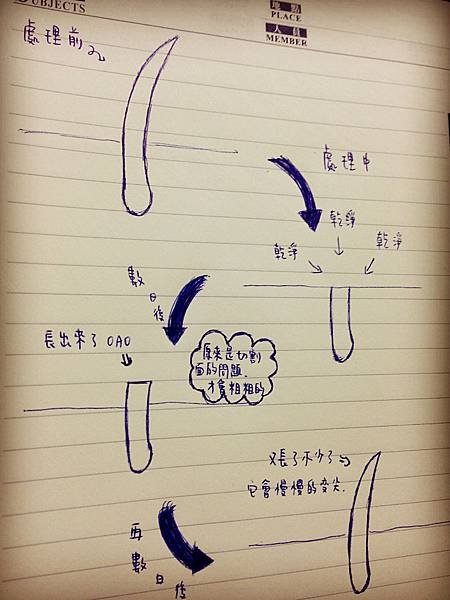 SUBJECTS
地點
PLACE
人員
MEMBER
處理前
處理中
乾淨
乾淨
乾淨
數
日
後
長出來了 OAO
原來是切割
面的問題.
才會粗粗的
又長了不少了
它會慢慢的變尖.
再
數
日
後